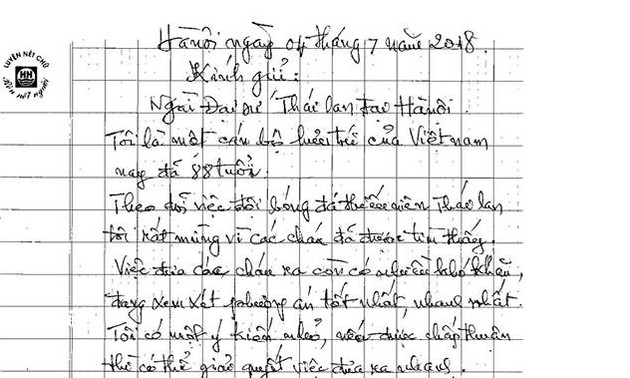 LUYỆN NÉT CHỮ
HH
RÈN NẾT NGƯỜI
Hà nội ngày 04 tháng 7 năm 2018.
Kính gửi:
Ngài Đại sứ Thái lan tại Hà nội.
Tôi là một cán bộ hưu trí của Việt nam
nay đã 88 tuổi.
Theo dõi việc đội bóng đá thiếu niên Thái lan
tôi rất mừng vì các cháu đã được tìm thấy.
Việc đưa các cháu ra còn có nhiều khó khăn,
đang xem xét phương án tốt nhất, nhanh nhất.
Tôi có một ý kiến nhỏ, nếu được chấp thuận
thì có thể giải quyết việc đưa ra nhanh.